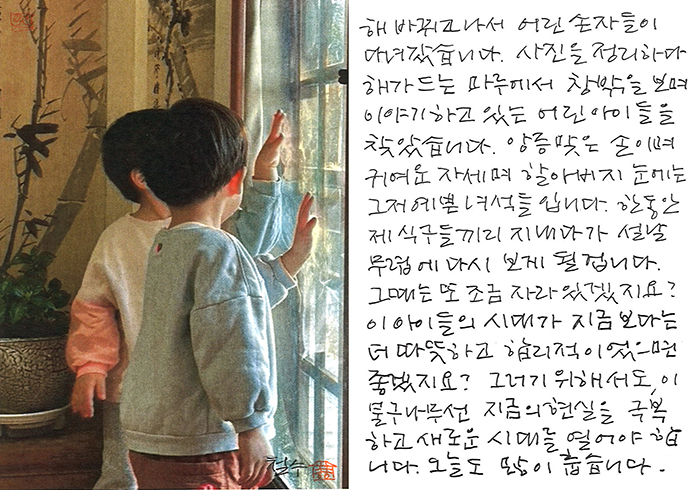 해 바뀌고나서 어린 손자들이
다녀갔습니다. 사진을 정리하다
해가 드는 마루에서 창밖을 보며
이야기하고 있는 어린아이들을
찾았습니다. 앙증맞은 손이며
귀여운 자세며 할아버지 눈에는
그저 예쁜 녀석들 입니다. 한동안
제 식구들끼리 지내다가 설날
무렵에 다시 보게 될겁니다.
그때는 또 조금 자라 있겠지요?
이 아이들의 시대가 지금보다는
더 따뜻하고 합리적이었으면
좋겠지요? 그러기 위해서도, 이
불구나무선 지금의 현실을 극복
하고 새로운 시대를 열어야 합
니다. 오늘도 많이 춥습니다.
철수